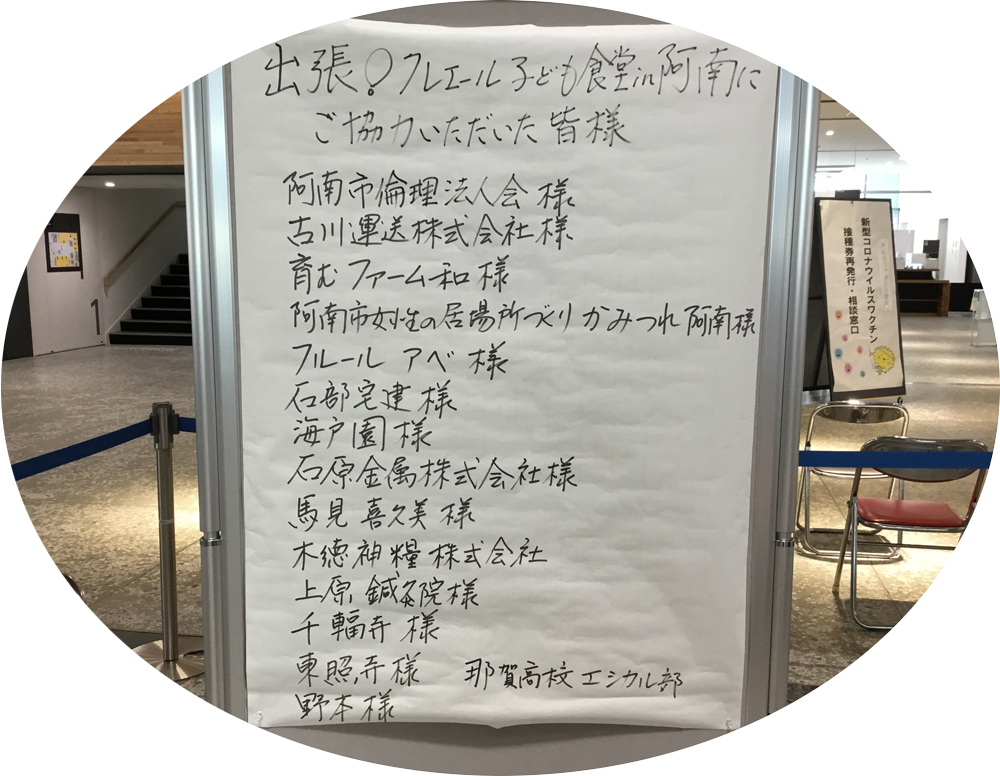 出張!フレエール子ども食堂in阿南に
ご協力いただいた皆様
阿南市倫理法人会 様
古川運送株式会社様
育むファーム和 様
阿南市女性の居場所づくり かみつれ阿南様
フルール アベ 様
石部宅建 様
海戸園 様
石原金属株式会社様
馬見 喜久美 様
木徳神糧 株式会社
上原 鍼灸院様
千輻寺 様
東照寺様 那賀高校エシカル部
野本様
新型コロナウイルスワクチン
接種券再発行・相談窓口
1